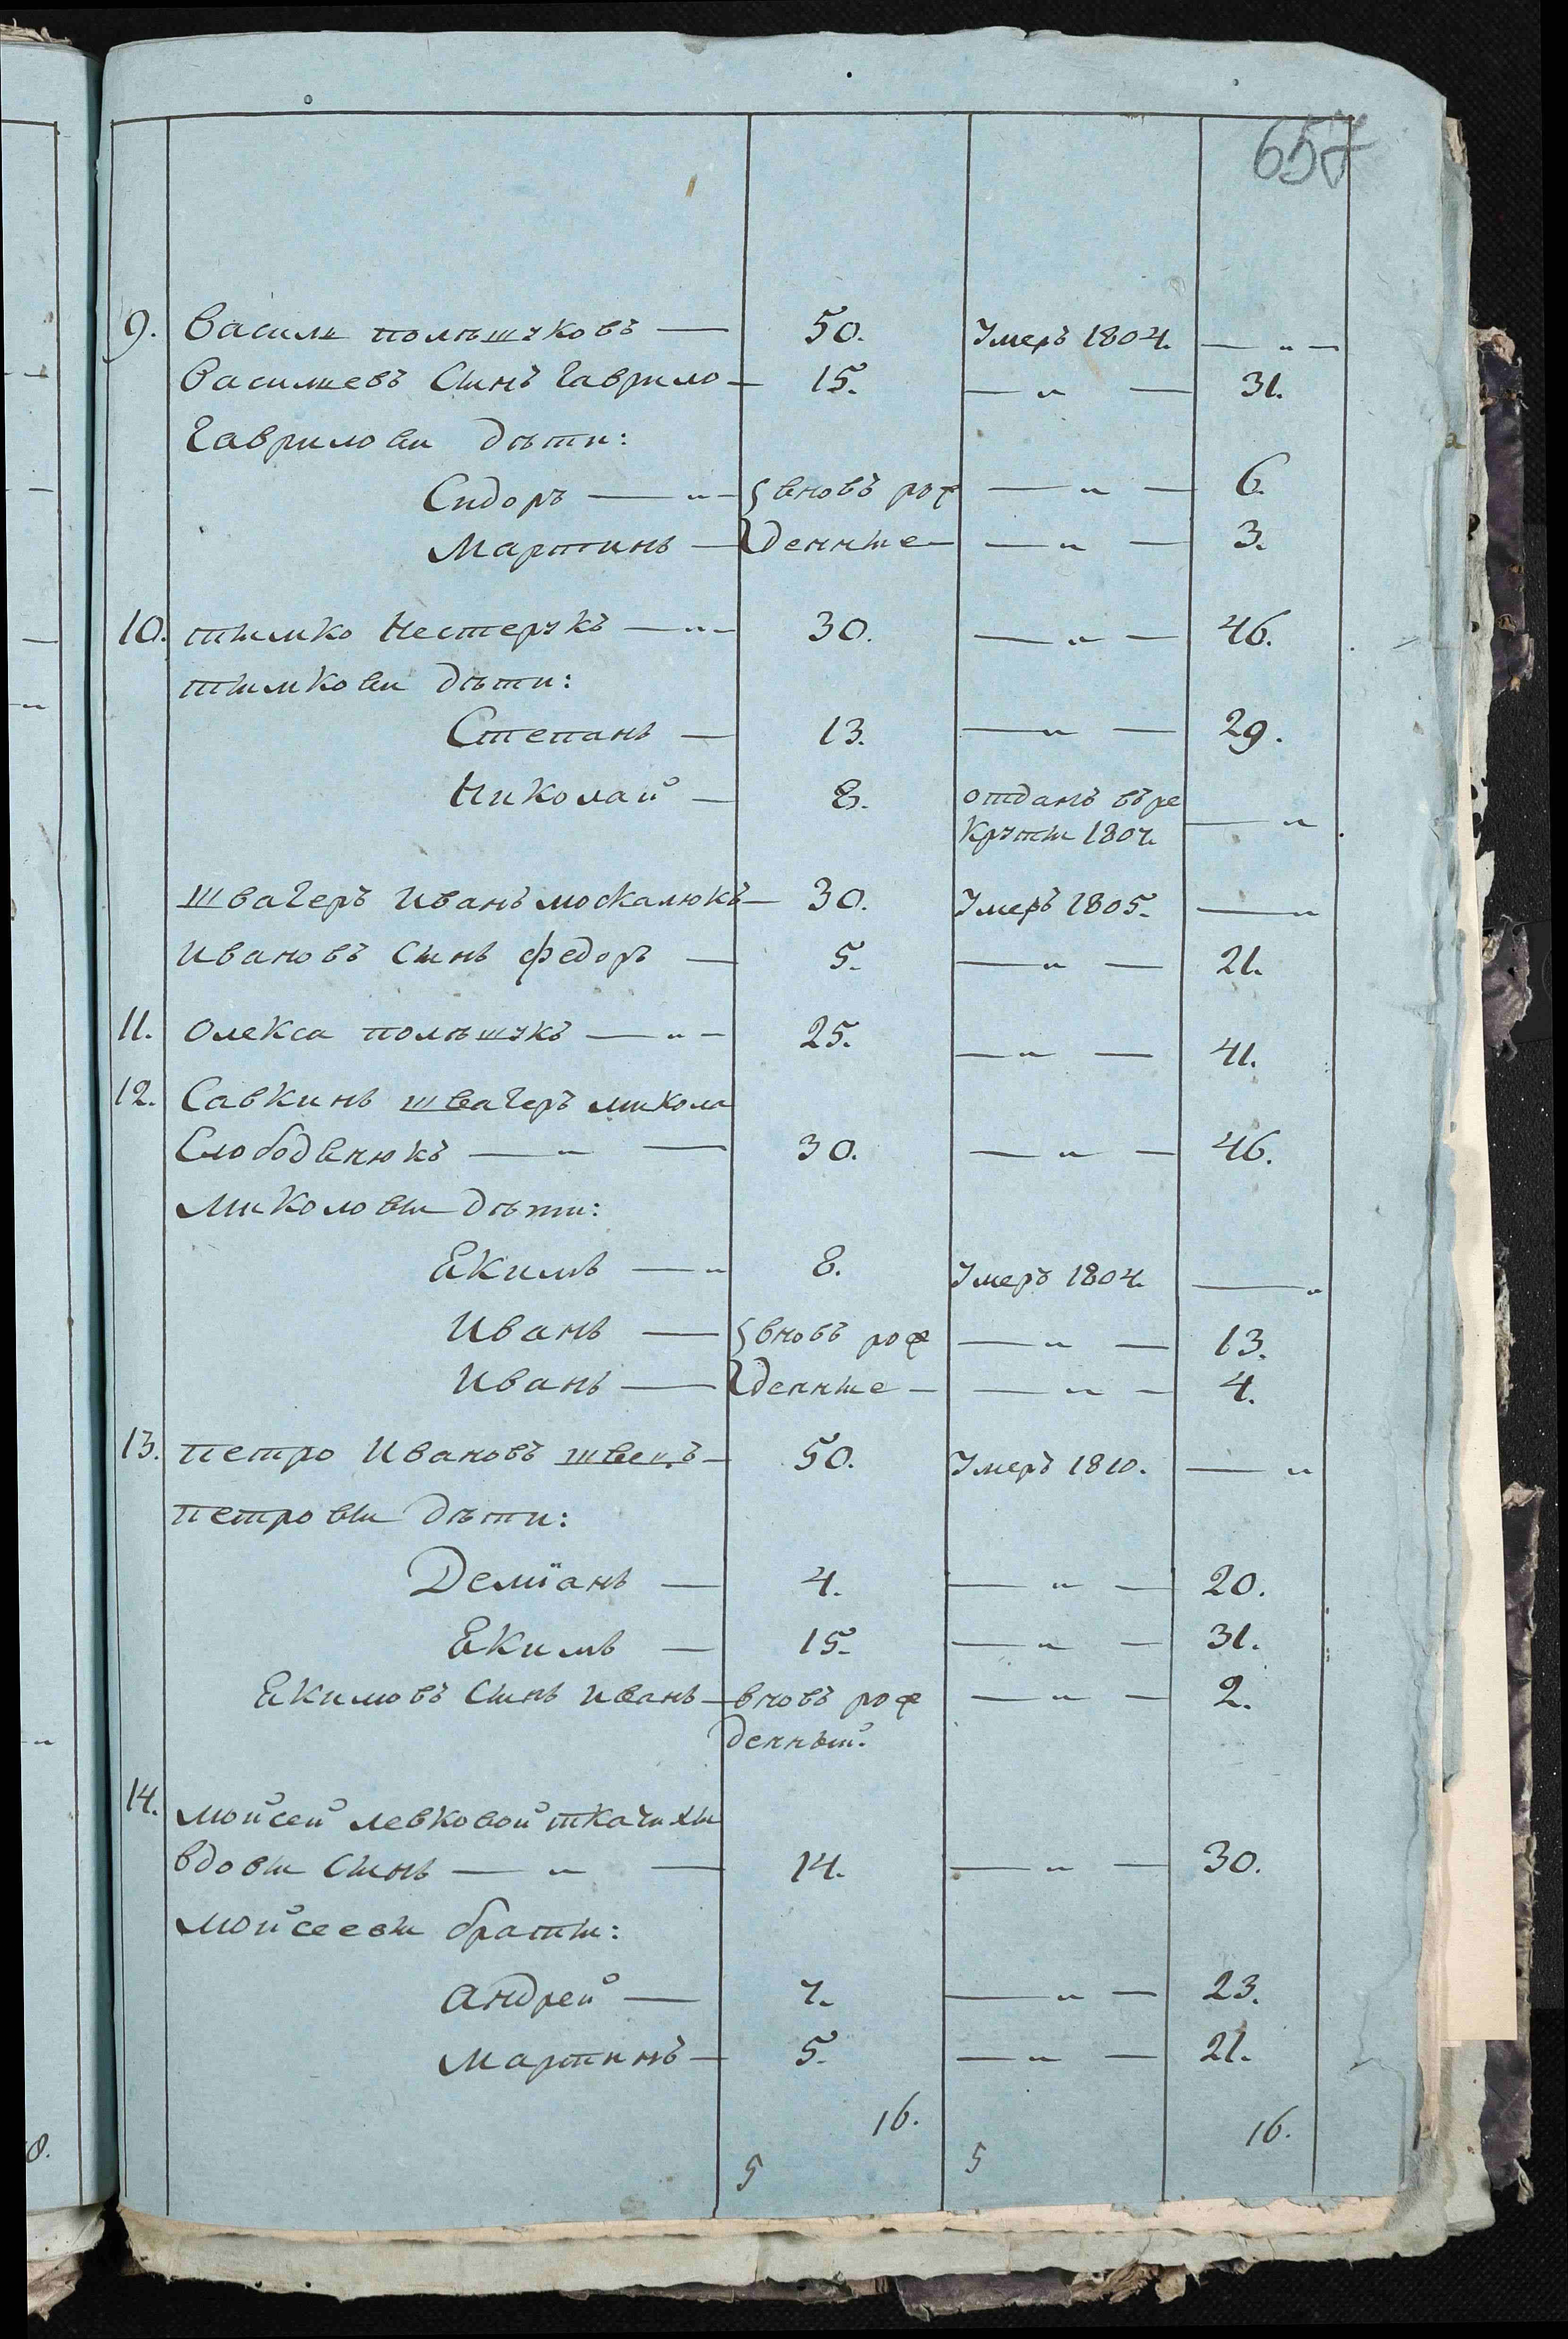 657
9. Василь полѣшуковъ — 50. Умеръ 1804. — „ —
Василевъ Сынъ Гаврило — 15. — „ — 31.
Гавриловы дѣти:
Сидоръ — „ — вновь рож — „ — 6.
Мартинъ — денные — — „ — 3.
10. тымко Нестерукъ — „ — 30. — „ — 46.
тымковы дѣти:
Степанъ — 13. — „ — 29.
Николай — 8. отданъ въ ре
круты 1807. — „
швагеръ Иванъ москалюкъ — 30. Умеръ 1805. — „
Ивановъ Сынъ федоръ — 5. — „ — 21.
11. Олекса полѣшукъ — „ — 25. — „ — 41.
12. Савкинъ швагеръ микола
Слободенюкъ — „ — 30. — „ — 46.
Миколовы дѣти:
Екимъ — „ 8. Умеръ 1804. — „
Иванъ — вновь рож — „ — 13.
Иванъ — денные — — „ — 4.
13. петро Ивановъ швецъ — 50. Умеръ 1810. — „
петровы дѣти:
Деміанъ — 4. — „ — 20.
Екимъ — 15. — „ — 31.
Екимовъ Сынъ Иванъ — вновь рож — „ — 2.
денный.
14. мойсей левковой ткачихы
вдовы Сынъ — „ — 14. — „ — 30.
мойсеевы браты:
Андрей — 7. — „ — 23.
Мартинъ — 5. — „ — 21.
16. 16.
5 5